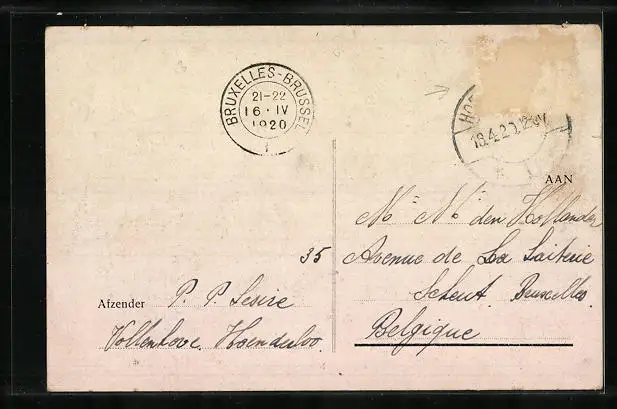 BRUXELLES-BRUSSEL
21-22
16 · IV
1920
1
HO
AAN
Mr Mr den Hollander
35 Avenue de La Laiterie
Scheut. Bruxelles.
Belgique
Afzender P. P. Lesire
Hoenderloo.